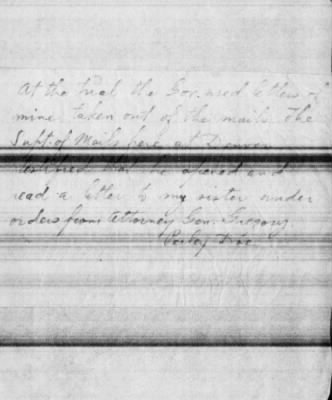 At the trial the Gov. used letters of
mine taken out of the mails. The
Supt. of Mails here at Denver
testified that he opened and
read a letter to my sister under
orders from Attorney Gen. Gregory.
Perley Doe.